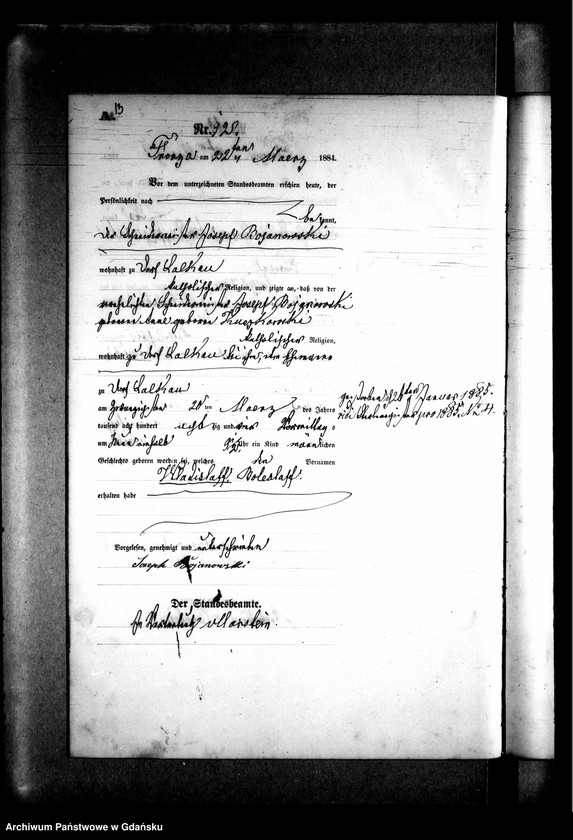 A. 13
Nr. 12.
am 22ten Maerz 1884.
Vor dem unterzeichneten Standesbeamten erschien heute, der
Persönlichkeit nach
bekannt,
der Joseph Bojanowski
wohnhaft zu Dorf Lalkau
katholischer Religion, und zeigte an, daß von der
Joseph Bojanowski
geborenen
katholischer Religion,
wohnhaft zu Dorf Lalkau
zu Dorf Lalkau
am zwanzigsten 20ten Maerz des Jahres
tausend acht hundert achtzig und vier Vormittag
um neun einhalb 9½ Uhr ein Kind männlichen
Geschlechts geboren worden sei, welches den Vornamen
Wladislaff Boleslaff.
erhalten habe
gestorben Januar 1885.
vide Sterberegister pro 1885. N: 4.
Vorgelesen, genehmigt und unterschrieben
Joseph Bojanowski
Der Standesbeamte.
In Vertretung
Archiwum Państwowe w Gdańsku